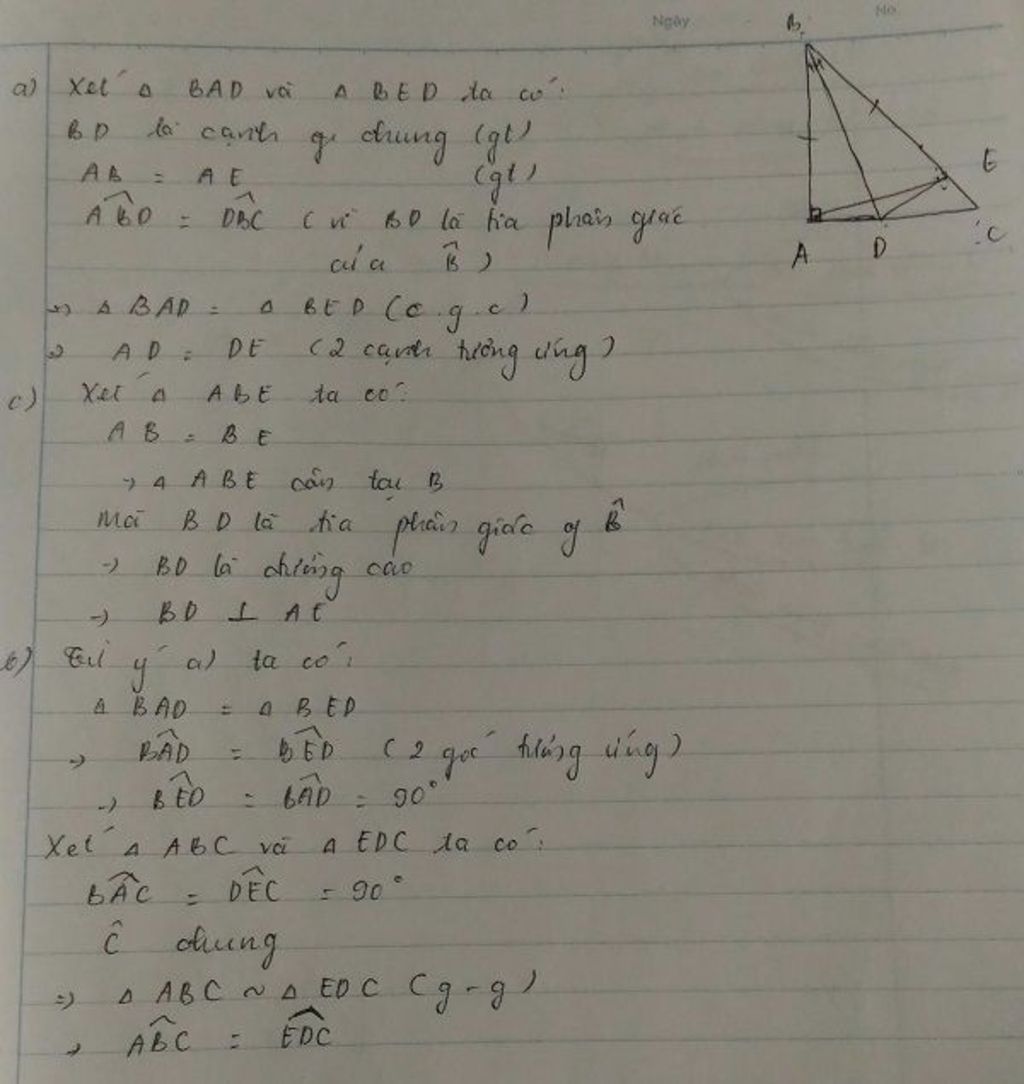 Ngày
No.
B
E
A
D
C
a) Xét Δ BAD và Δ BED ta có:
BD là cạnh chung (gt)
AB = AE (gt)
ABD̂ = DBĈ ( vì BD là tia phân giác
của B̂ )
=> Δ BAD = Δ BED (c.g.c)
=> AD = DE (2 cạnh tương ứng)
c) Xét Δ ABE ta có:
AB = BE
→ Δ ABE cân tại B
Mà BD là tia phân giác B̂
→ BD là đường cao
→ BD ⊥ AE
b) Từ ý a) ta có:
Δ BAD = Δ BED
→ BÂD = BÊD (2 góc tương ứng)
→ BÊD = BÂD = 90°
Xét Δ ABC và Δ EDC ta có:
BÂC = DÊC = 90°
Ĉ chung
=> Δ ABC ~ Δ EDC (g-g)
→ AB̂C = ED̂C